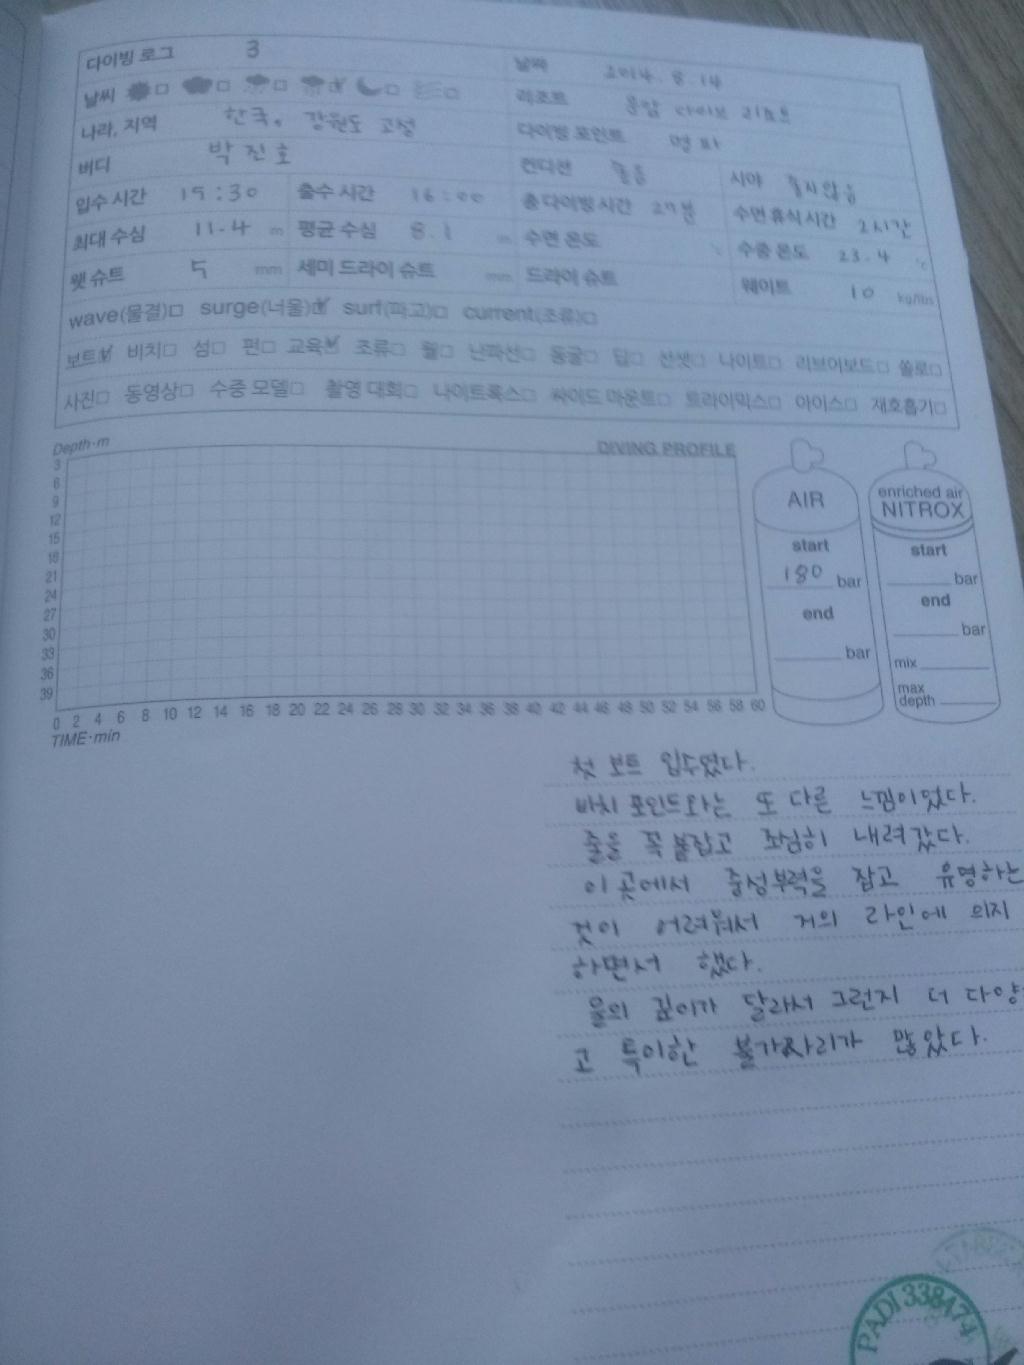 다이빙 로그 3 날짜 2014. 8. 14
날씨 리조트 다이브 리조트
나라, 지역 한국, 강원도 고성 다이빙 포인트 명파
버디 박진호 컨디션 좋음 시야 좋지않음
입수 시간 15:30 출수 시간 16:00 총 다이빙 시간 27분 수면 휴식 시간 2시간
최대 수심 11.4 m 평균 수심 8.1 m 수면 온도 ℃ 수중 온도 23.4 ℃
웻 슈트 5 mm 세미 드라이 슈트 mm 드라이 슈트 웨이트 10 kg/lbs
wave(물결)□ surge(너울)☑ surf(파고)□ current(조류)□
보트☑ 비치□ 섬□ 펀□ 교육☑ 조류□ 월□ 난파선□ 동굴□ 딥□ 선셋□ 나이트□ 리브어보드□ 쏠로□
사진□ 동영상□ 수중 모델□ 촬영 대회□ 나이트록스□ 싸이드 마운트□ 트라이믹스□ 아이스□ 재호흡기□
Depth·m DIVING PROFILE
3
6
9
12
15
18
21
24
27
30
33
36
39
0 2 4 6 8 10 12 14 16 18 20 22 24 26 28 30 32 34 36 38 40 42 44 46 48 50 52 54 56 58 60
TIME·min
AIR
start
180 bar
end
bar
enriched air
NITROX
start
bar
end
bar
mix
max
depth
첫 보트 입수였다.
비치 포인트와는 또 다른 느낌이었다.
줄을 꼭 붙잡고 조심히 내려갔다.
이 곳에서 중성부력을 잡고 유영하는
것이 어려워서 거의 라인에 의지
하면서 했다.
물의 깊이가 달라서 그런지 더 다양하
고 특이한 불가사리가 많았다.
PADI 338474